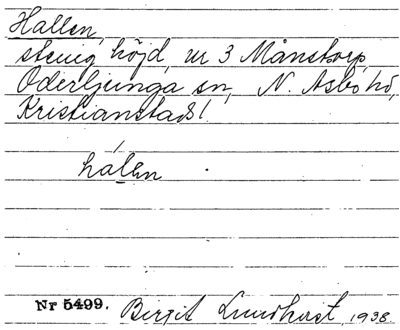 Hallen,
stenig höjd, nr 3 Månstorp,
Oderljunga sn, N. Åsbo hd,
Kristianstads l
hálen
Nr 5499. Birgit Lundkvist 1938.